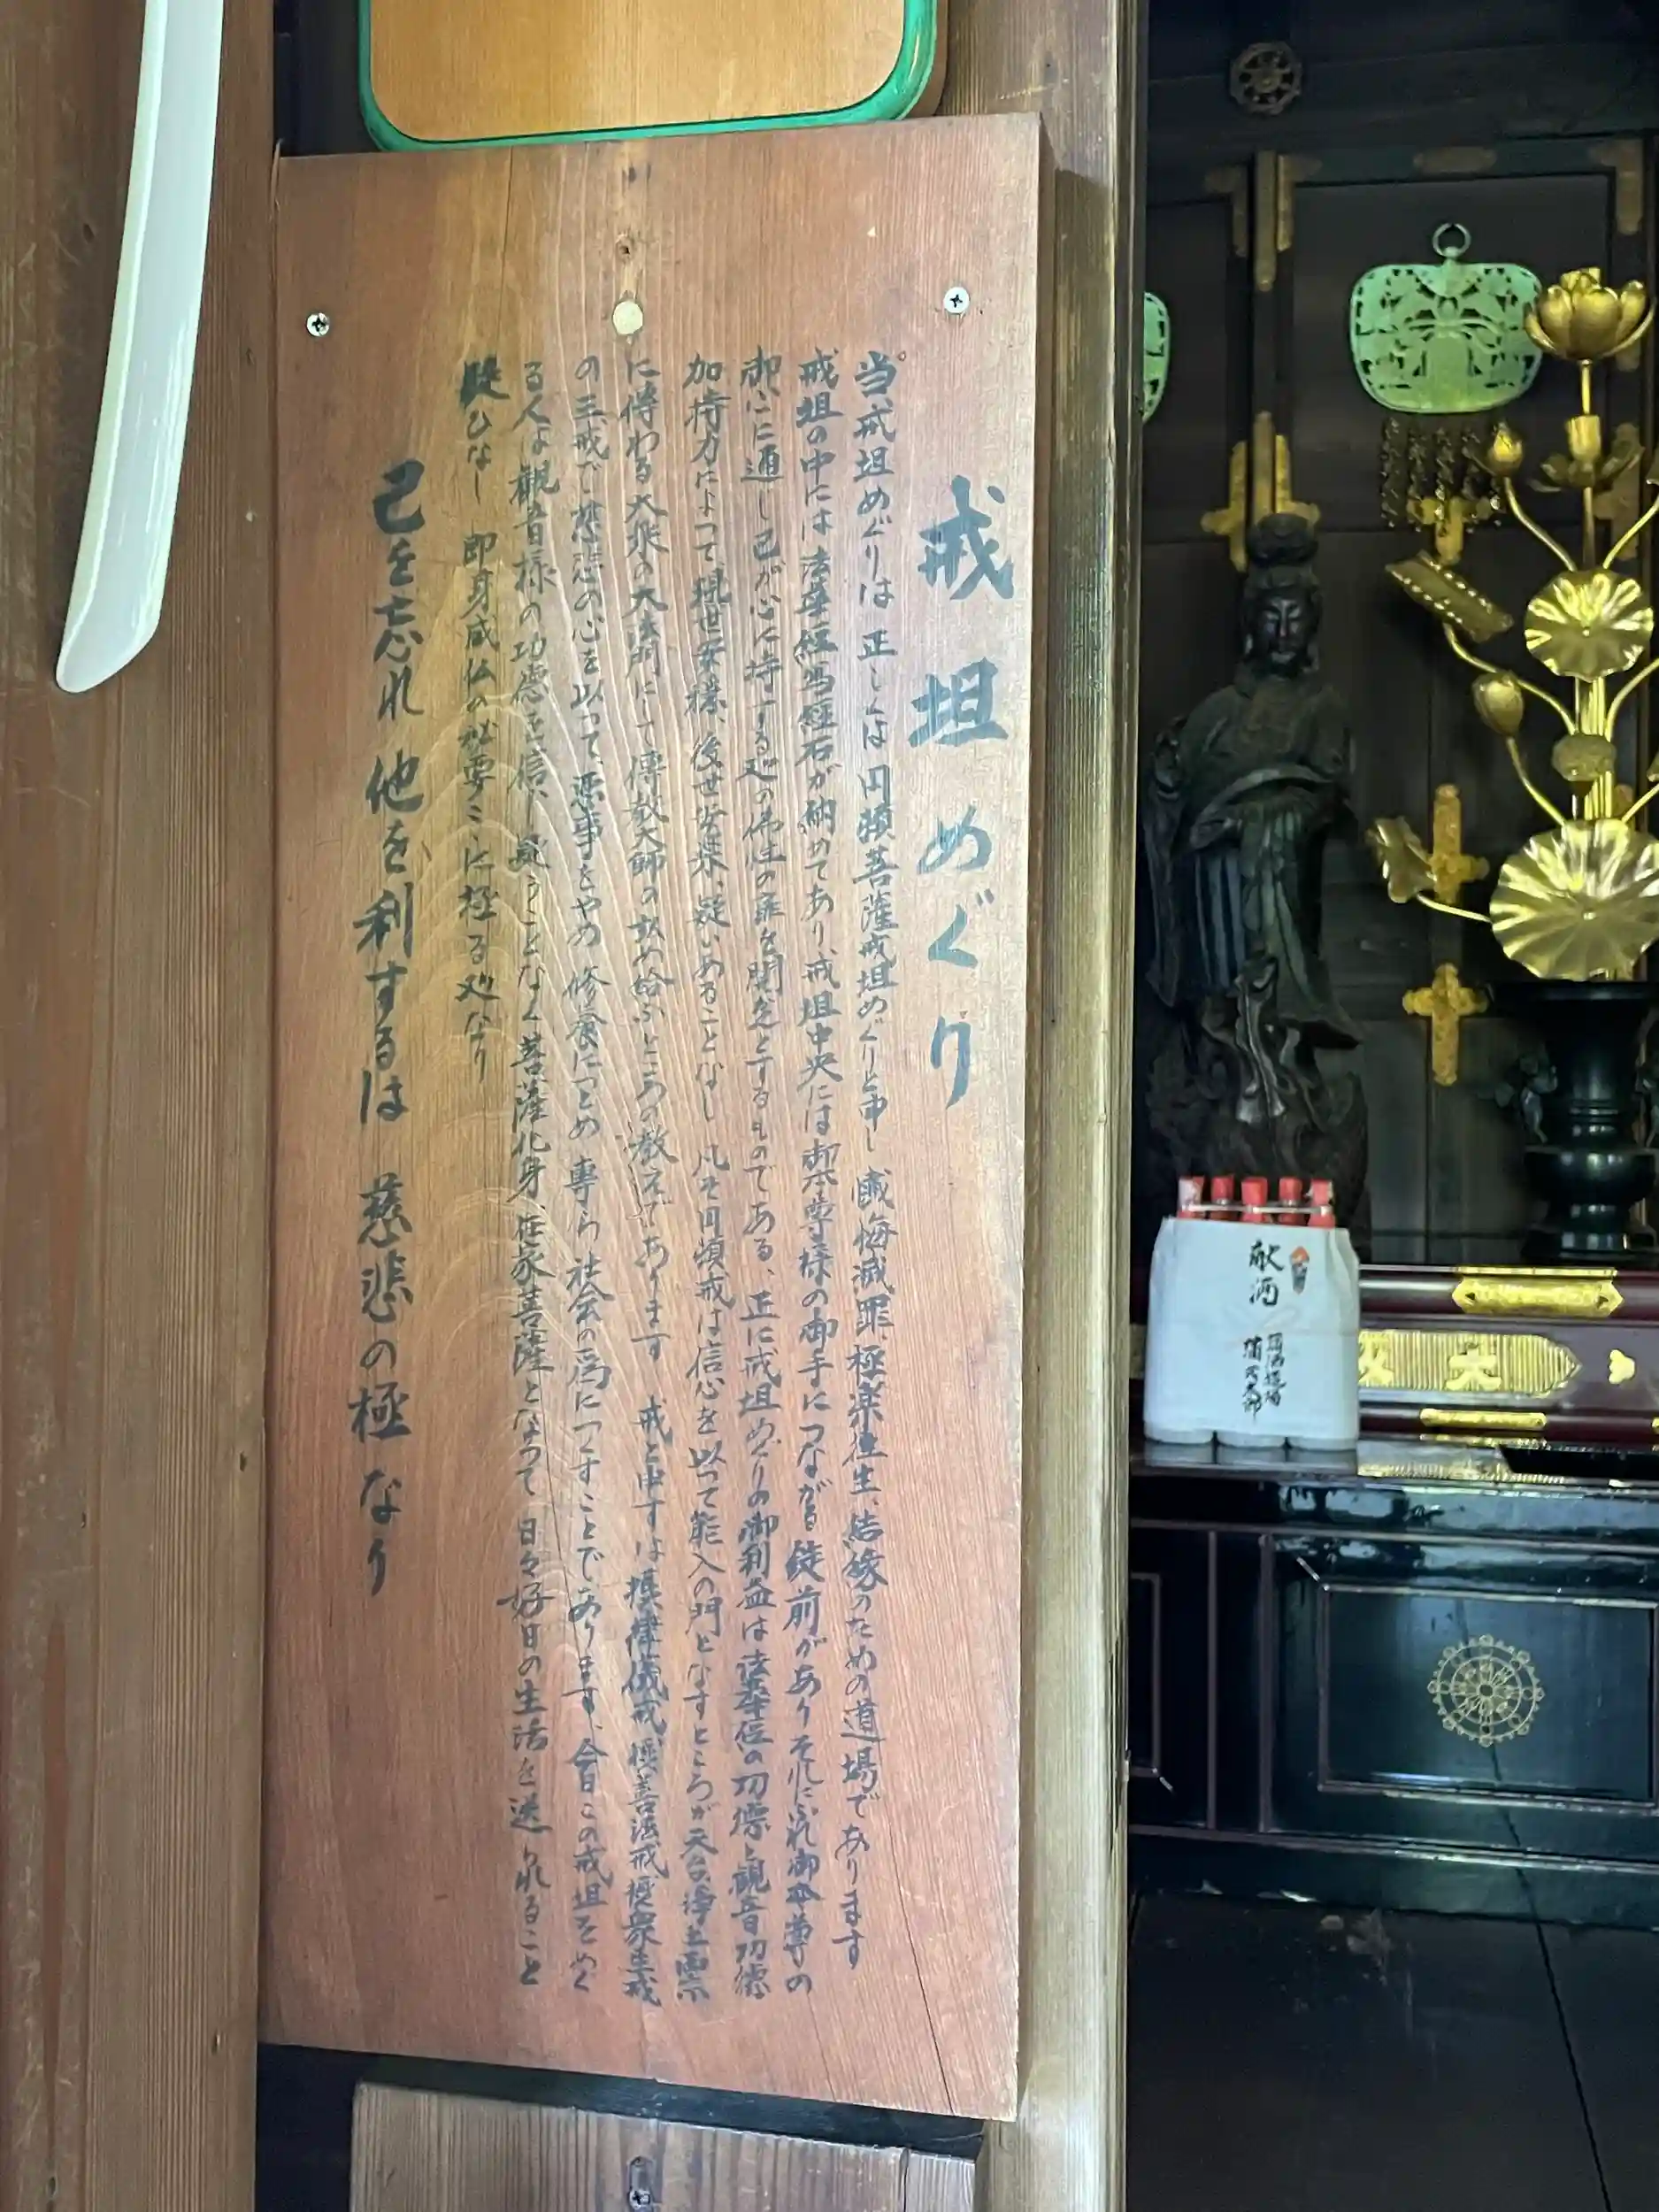 戒壇めぐり
当戒壇めぐりは 正しくは 円頓菩薩戒壇めぐりと申し 懺悔滅罪、極楽往生、結縁のための道場であります
戒壇の中には 法華経写経石が納めてあり、戒壇中央には御本尊様の御手につながる錠前がありそれにふれ御本尊の
御心に通し己が心に持する処の佛性の扉を開発とするものである、正に戒壇めぐりの御利益は法華経の功徳と観音功徳
加持力によって現世安穏、後世安楽、疑いあることなし 凡そ円頓戒は信心を以って能入の門となすところが天台浄土両宗
に傳わる大乗の大法門にして傳教大師の 誡め給ふところの教えであります 戒と申すは 摂律儀戒、摂善法戒 摂衆生戒
の三戒で 慈悲の心を以って、悪事をやめ 修養につとめ 専ら 社会の為につすことであります、今日この戒壇をめぐ
る人は 観音様の功徳を信じ疑うことなく 菩薩化身、在家菩薩となって 日々好日の生活を送られること
疑ひなし 即身成仏の秘要ここに極る処なり
己を忘れ 他を利するは 慈悲の極なり
献酒